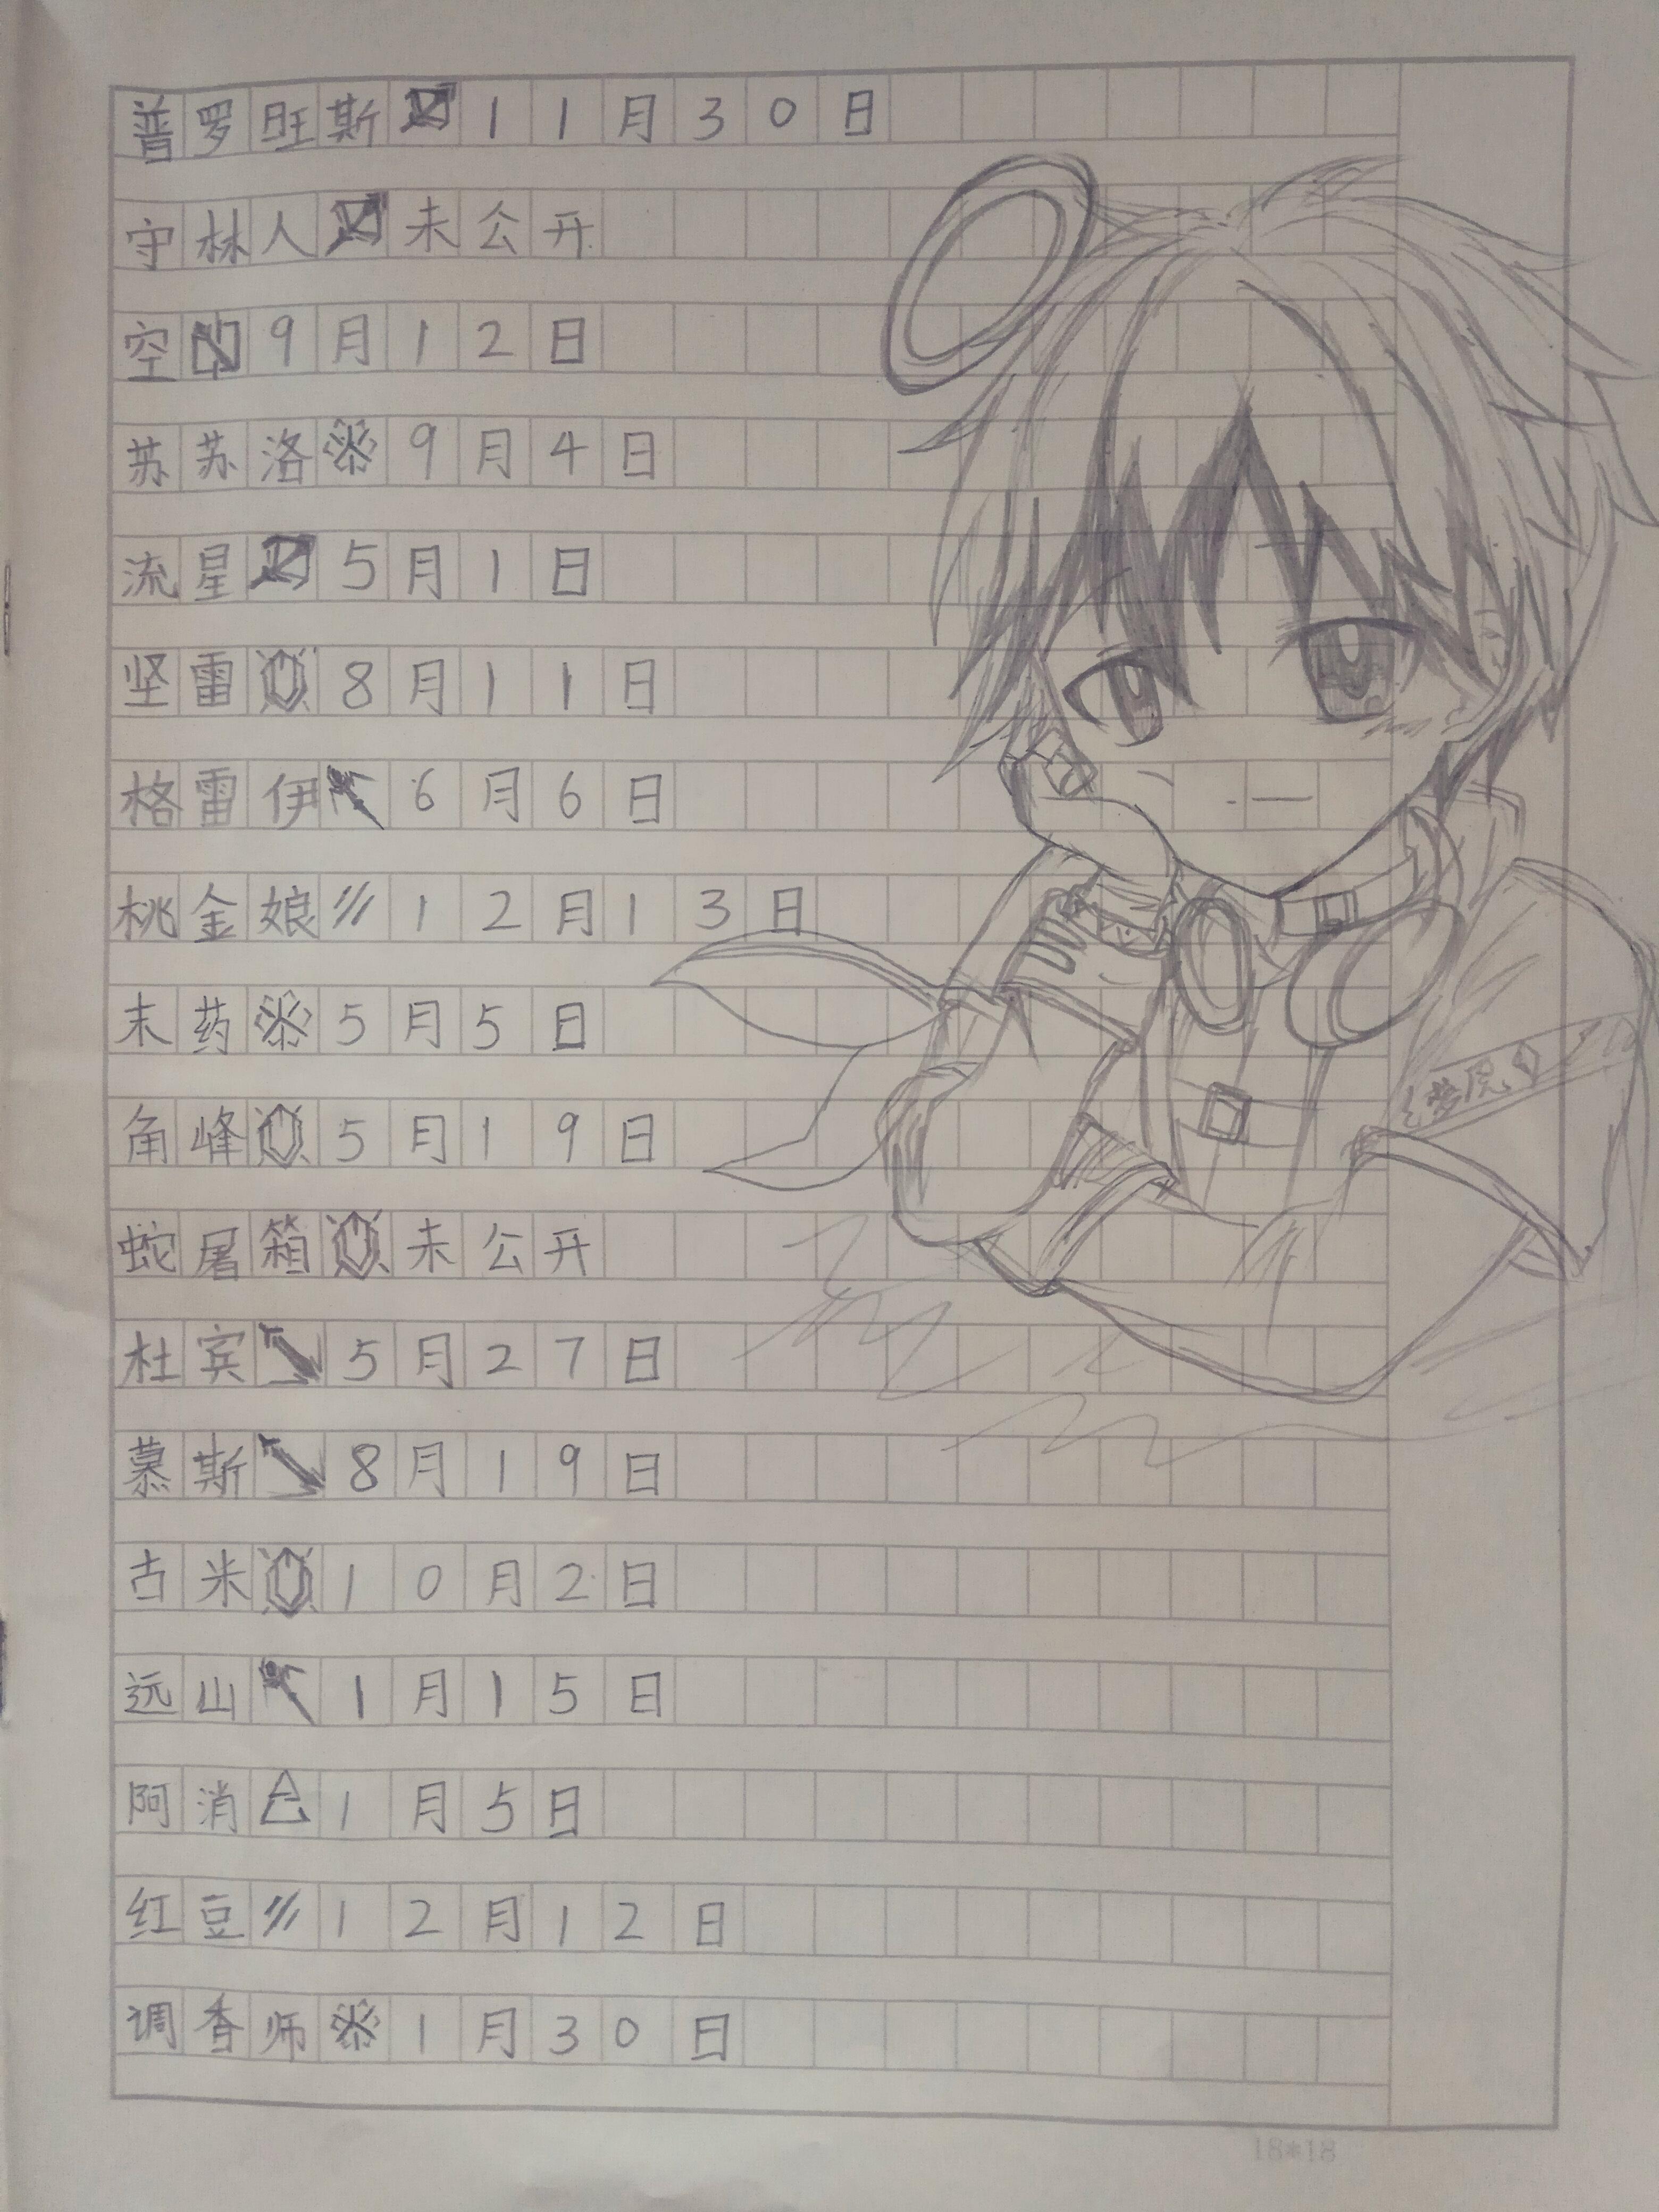 普罗旺斯11月30日
守林人未公开
空9月12日
苏苏洛9月4日
流星5月1日
坚雷8月11日
格雷伊6月6日
桃金娘12月13日
末药5月5日
角峰5月19日
蛇屠箱未公开
杜宾5月27日
慕斯8月19日
古米10月2日
远山1月15日
阿消1月5日
红豆12月12日
调香师1月30日
18*18